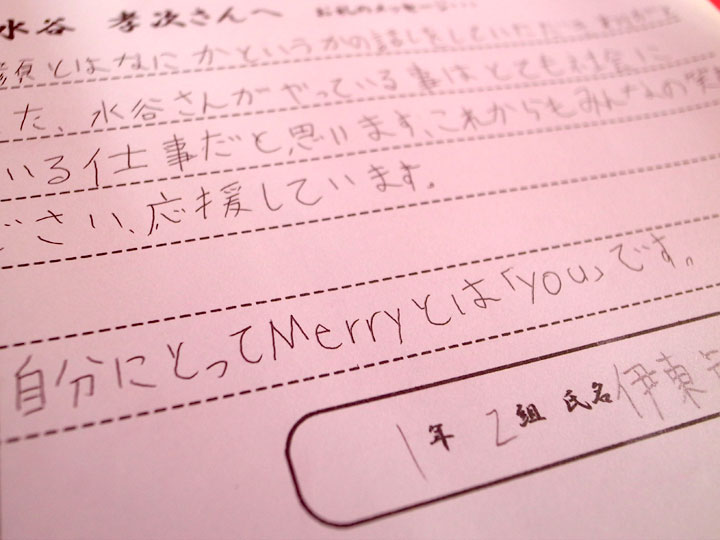 水谷 孝次さんへ お礼のメッセージ…
顔とはなにかというかの話しをしていただき
た、水谷さんがやっている事はとても社会に
いる仕事だと思います、これからもみんなの笑
ださい、応援しています。
自分にとってMerryとは「you」です。
1年 2組 氏名 伊東